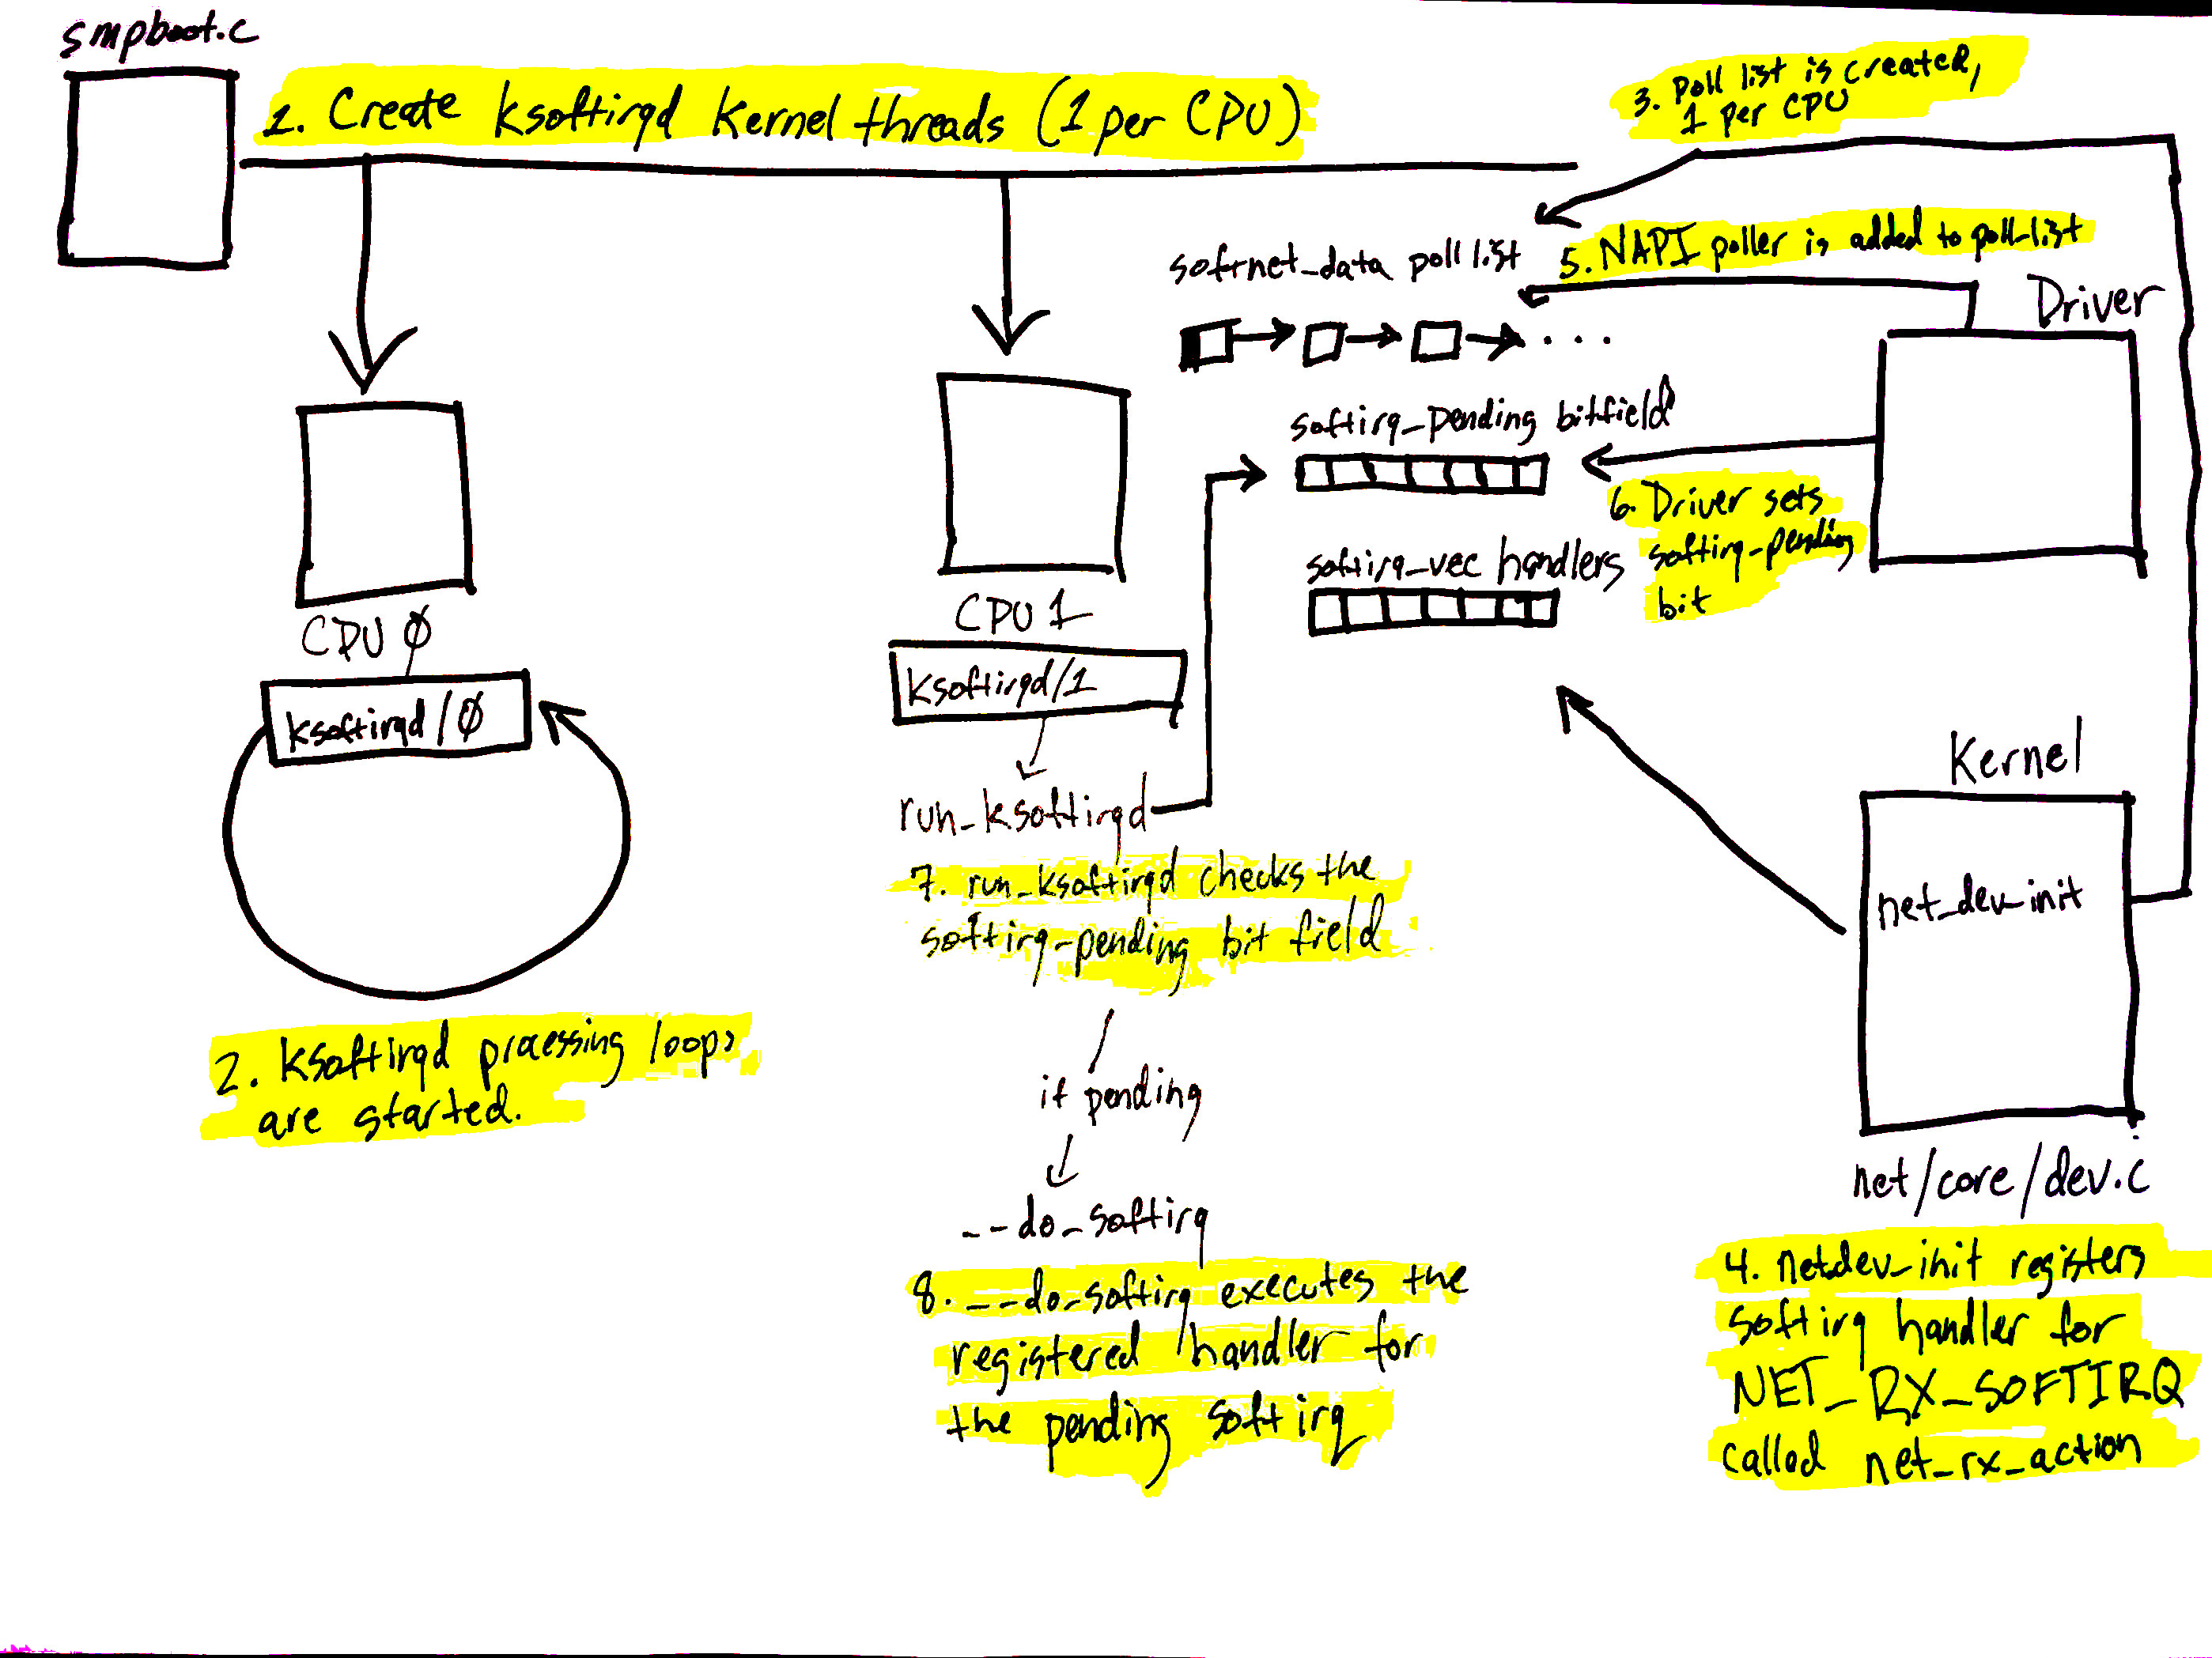 smpboot.c
1. Create ksoftirqd kernel threads (1 per CPU)
3. poll list is created,
1 per CPU
5. NAPI poller is added to poll_list
softnet_data poll list
Driver
softirq_pending bitfield
6. Driver sets
softirq_pending
bit
softirq_vec handlers
CPU 0
CPU 1
ksoftirqd/0
ksoftirqd/1
run_ksoftirqd
7. run_ksoftirqd checks the
softirq_pending bit field
Kernel
net_dev_init
2. ksoftirqd processing loops
are started.
if pending
__do_softirq
8. __do_softirq executes the
registered handler for
the pending softirq
net/core/dev.c
4. netdev_init registers
softirq handler for
NET_RX_SOFTIRQ
called net_rx_action